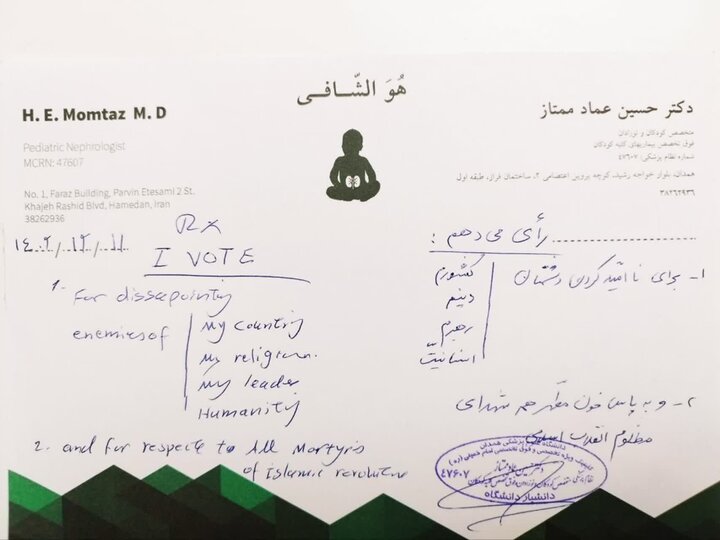 هُوَ الشّافی
H. E. Momtaz M. D
Pediatric Nephrologist
MCRN: 47607
No. 1, Faraz Building, Parvin Etesami 2 St.
Khajeh Rashid Blvd, Hamedan, Iran
38262936
دکتر حسین عماد ممتاز
متخصص کودکان و نوزادان
فوق تخصص بیماریهای کلیه کودکان
شماره نظام پزشکی: ۴۷۶۰۷
همدان، بلوار خواجه رشید، کوچه پروین اعتصامی ۲، ساختمان فراز، طبقه اول
۳۸۲۶۲۹۳۶
۱۴۰۲/۱۲/۱۱
Rx
I VOTE
1- For dissapointing
enemies of
My country
My religion.
My leader
Humanity
2. and for respecte to All Martyrs
of Islamic revolution
رأی می دهم :
۱- برای ناامید کردن دشمنان
کشورم
دینم
رهبرم
انسانیت
۲- و به پاس خون مطهر همه شهدای
مظلوم انقلاب اسلامی
دانشگاه علوم پزشکی همدان
دکتر حسین عماد ممتاز
۴۷۶۰۷
دانشیار دانشگاه